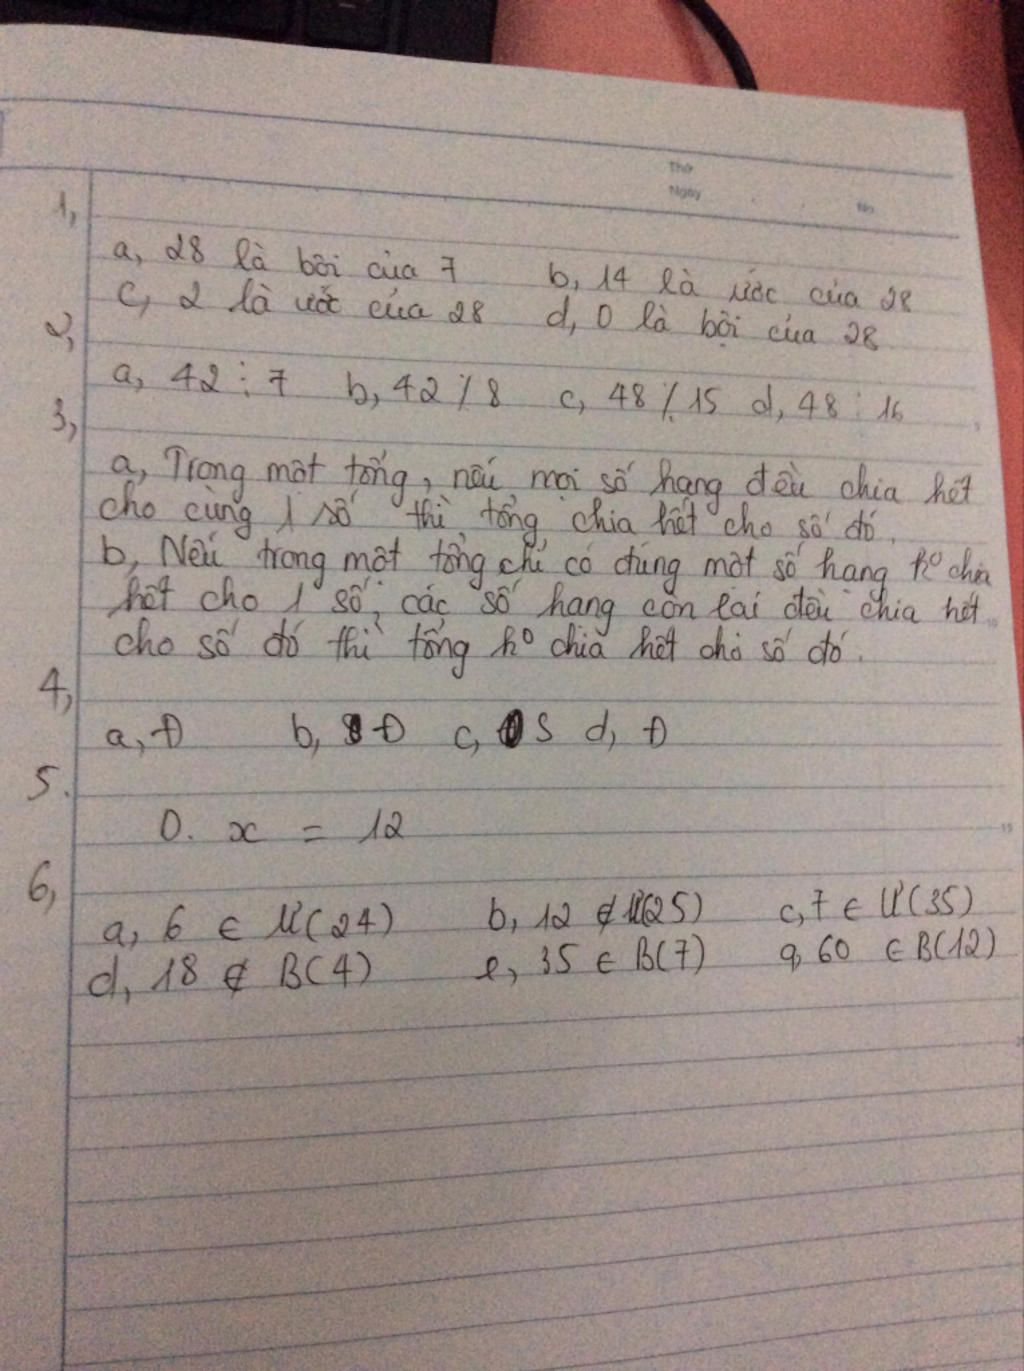 Thứ
Ngày
No.
1,
a, 28 là bội của 7 b, 14 là ước của 28
c, 2 là ước của 28 d, 0 là bội của 28
2,
a, 42 ⋮ 7 b, 42 ⋮̸ 8 c, 48 ⋮̸ 15 d, 48 ⋮ 16
3,
a, Trong một tổng, nếu mọi số hạng đều chia hết
cho cùng 1 số thì tổng chia hết cho số đó.
b, Nếu trong một tổng chỉ có đúng một số hạng k° chia
hết cho 1 số, các số hạng còn lại đều chia hết
cho số đó thì tổng k° chia hết cho số đó.
4,
a, Đ b, Đ c, S d, Đ
5.
D. x = 12
6,
a, 6 ∈ Ư(24) b, 12 ∉ Ư(25) c, 7 ∈ Ư(35)
d, 18 ∉ B(4) e, 35 ∈ B(7) g, 60 ∈ B(12)